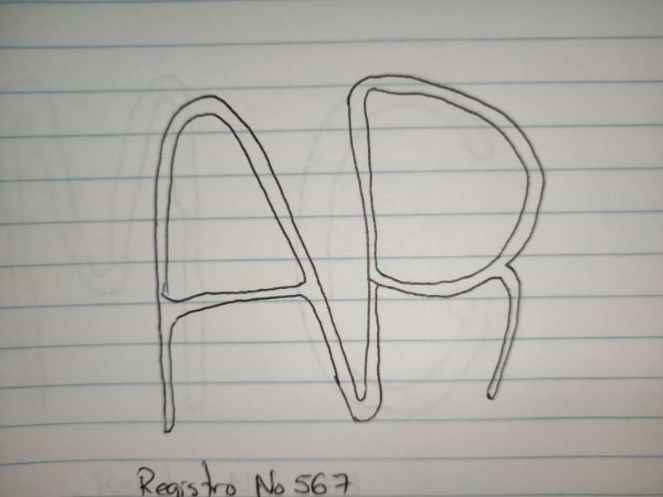 AR
Registro No 567